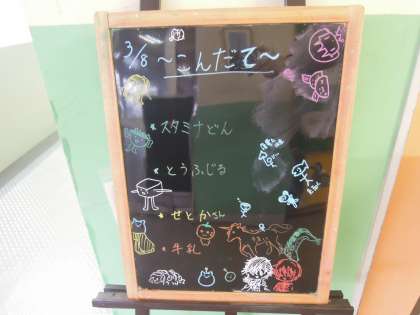 3/8 ～こんだて～
* スタミナどん
* とうふじる
* せとかさん
* 牛乳